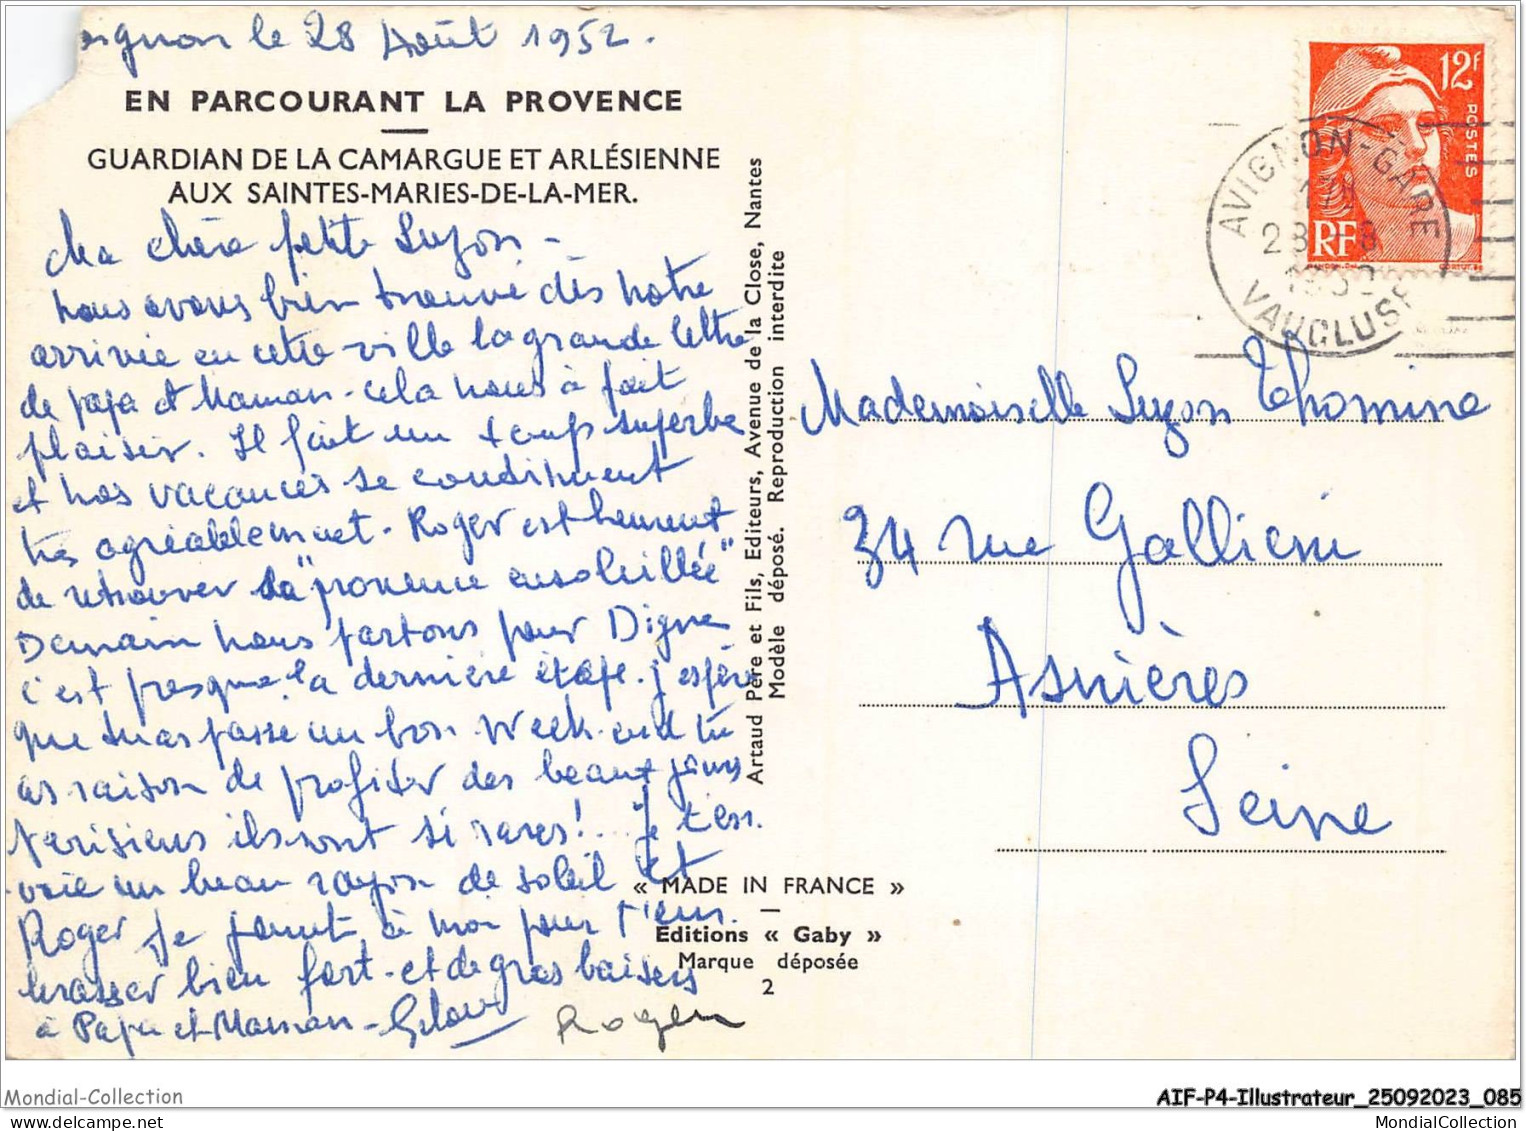 ignon le 28 Août 1952.
EN PARCOURANT LA PROVENCE
GUARDIAN DE LA CAMARGUE ET ARLÉSIENNE
AUX SAINTES-MARIES-DE-LA-MER.
Ma chère petite Suzon -
nous avons bien trouvé dès notre
arrivée en cette ville la grande lettre
de papa et Maman - cela nous à fait
plaisir. Il fait un temps superbe
et nos vacances se continuent
très agréablement. Roger est heureux
de retrouver sa "provence ensoleillée"
Demain nous partons pour Digne
c'est presque la dernière étape. j'espère
que tu as passé un bon Week-end tu
as raison de profiter des beaux jours
ils sont si rares!... Je t'en.
voie un beau rayon de soleil et
Roger se joint à moi pour t'em.
brasser bien fort - et de gros baisers
à Papa et Maman -
Roger
Artaud Père et Fils, Editeurs, Avenue de la Close, Nantes
Modèle déposé. Reproduction interdite
« MADE IN FRANCE »
Editions « Gaby »
Marque déposée
2
12F
POSTES
RF
AVIGNON-GARE
28-8
VAUCLUSE
Mademoiselle Suzon Thomine
34 rue Gallieni
Asnières
Seine
Mondial-Collection
AIF-P4-Illustrateur_25092023_085
MondialCollection